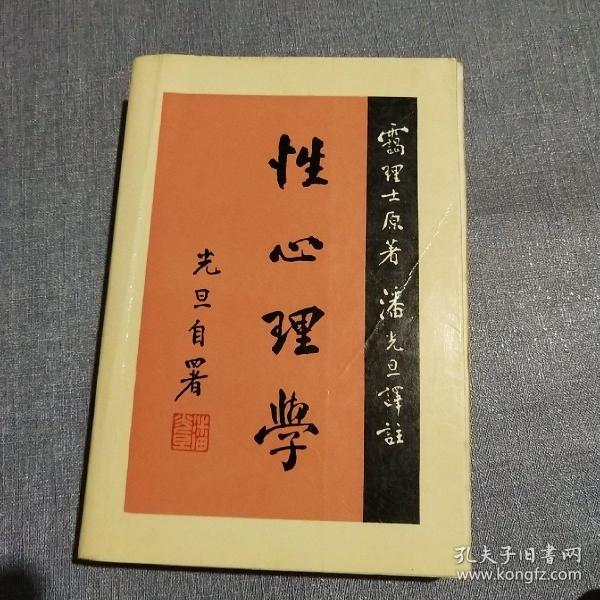 靄理士原著 潘光旦譯註
性心理學
光旦自署
潘光旦
孔夫子旧书网
www.kongfz.com